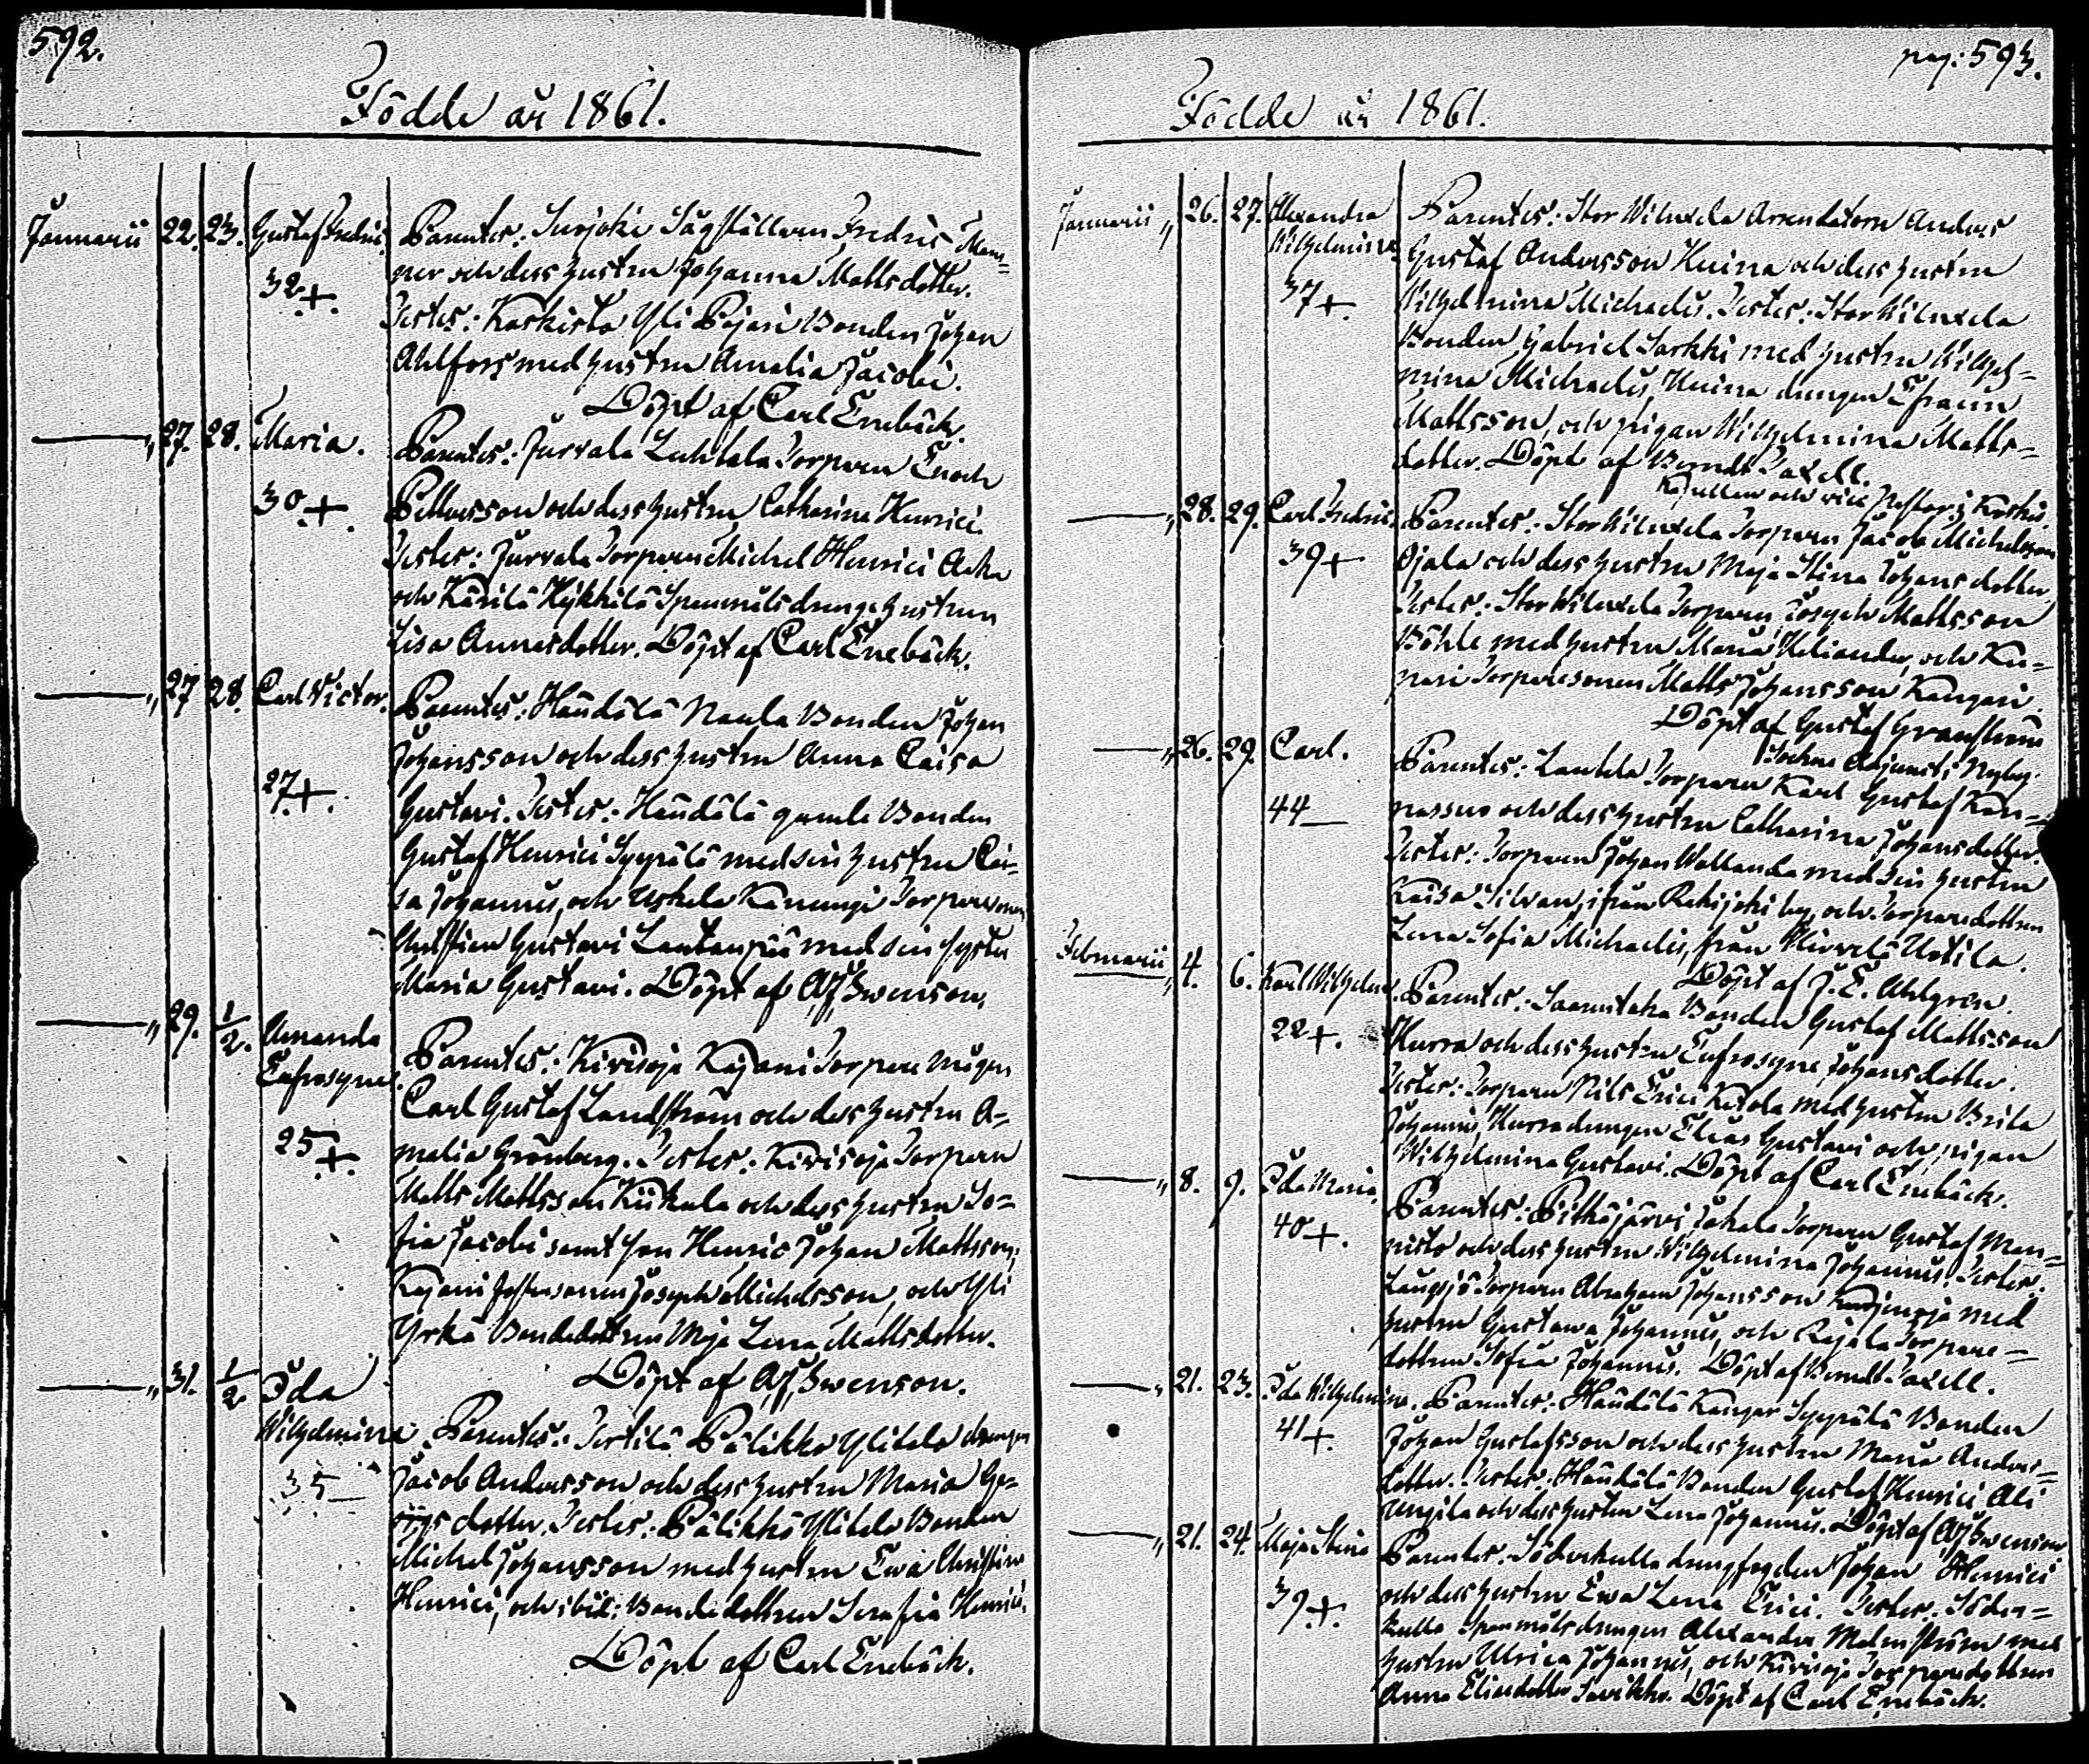 592.
Födde år 1861.
Januarii 22. 23. Gustaf Fredric. Parentes: Surjoki Sågställaren Fredric
32+. ner och dess hustru Johanna Mattsdotter.
Testes: Karkista Yli Pejari Bonden Johan
Ahlfors med hustru Amalia Jacobi.
Döpt af Carl Enebäck.
— „ 27. 28. Maria. Parentes: Jurvala Luhtala Torparen Enoch
30+. Pettersson och dess hustru Catharina Henrici.
Testes: Jurvala Torparen Michel Henrici
och Kärilä Hykkilä Spanmålsdränge hustrun
Lisa Annasdotter. Döpt af Carl Enebäck.
— „ 27 28. Carl Victor. Parentes: Händälä Naula Bonden Johan
Johansson och dess hustru Anna Caisa
27+. Gustavi. Testes: Händälä gamle Bonden
Gustaf Henrici Syypälä med sin hustru Cai-
sa Johannis, och Uskela Torpareson
Christian Gustavi Lautanpää med sin syster
Maria Gustavi. Döpt af AJ Swenson.
— „ 29. 1/2. Amanda
Eufrosyne. Parentes: Kivisoja Kajani Torpare mågen
Carl Gustaf Landström och dess hustru A-
25+. malia Grönberg. Testes: Kivisoja Torparen
Matts Mattsson Kiikala och dess hustru So-
fia Jacobi samt son Henric Johan Mattsson,
Kajani Joseph Michelsson, och Yli
Yrkä Bondedottren Maja Lena Mattsdotter.
Döpt af AJ Swenson.
— „ 31. 1/2 Ida
Wilhelmina Parentes: Tertilä Pälikkö Ylitalo drängen
35— Jacob Andersson och dess hustru Maria Ge-
orgs dotter. Testes: Pälikkö Ylitalo Bonden
Michel Johansson med hustru Ewa Christina
Henrici, och ibid: Bondedottren Serafia Henrici.
Döpt af Carl Enebäck.
pag: 593.
Födde år 1861.
Januarii „ 26. 27. Alexandra Parentes: Stor Wiluxela Arrendatorn Anders
Wilhelmina. Gustaf Andersson Huina och dess hustru
37+. Wilhelmina Michaelis. Testes: Stor Wiluxela
Bonden Gabriel Sarkki med hustru Wilhel-
mina Michaelis, Huina drängen Efraim
Mattsson, och pigan Wilhelmina Matts-
dotter. Döpt af Berndt Paxell.
Kapellan och vice Pastor i Koskis.
— „ 28. 29. Carl Fredric. Parentes: Stor Wiluxela Torparen Jacob Michelsson
39+ Ojala och dess hustru Maja Stina Johansdotter
Testes: Stor Wiluxela Torparen Joseph Mattsson
Böhle med hustru Maria Heliander, och
Torparesonen Matts Johansson Kangari.
Döpt af Gustaf Granström
Sockne Adjunct i Nyby.
— „ 26. 29. Carl. Parentes: Lautela Torparen Karl Gustaf Kan-
44— nassuo och dess hustru Catharina Johansdotter.
Testes: Torparen Johan Wallanda med sin hustru
Kaisa Silvan, ifrån Rekijoki by, och Torparedottren
Lena Sofia Michaelis, från Uotila.
Döpt af J. E. Ahlgren.
Februarii „ 4. 6. Karl Wilhelm. Parentes: Saarentaka Bonden Gustaf Mattsson
22+. Hurra och dess hustru Eufrosyne Johansdotter.
Testes: Torparen Nils Erici Ketola med hustru Brita
Johannis, Hurra drängen Elias Gustavi och pigan
Wilhelmina Gustavi. Döpt af Carl Enebäck.
— „ 8. 9. Ida Maria. Parentes: Pitkäjärvi Jakala Torparen Gustaf Man-
40+. nisto och dess hustru Wilhelmina Johannis. Testes:
Långsjö Torparen Abraham Johansson med
hustru Gustava Johannis, och Rajala Torpare-
dottren Sofia Johannis. Döpt af Berndt Paxell.
— „ 21. 23. Ida Wilhelmina. Parentes: Händälä Kangar Syypälä Bonden
41+. Johan Gustafsson och dess hustru Maria Anders-
dotter. Testes: Händälä Bonden Gustaf Henrici Ali
Anjila och dess hustru Lena Johannis. Döpt af AJ Swenson
— „ 21. 24. Maja Stina Parentes: Söderkulla drängfogden Johan Henrici
39+. och dess hustru Ewa Lena Erici. Testes: Söder-
kulla Spanmålsdrängen Alexander Malmström med
hustru Ulrica Johannis, och Kivisoja Torparedottren
Anna Eliasdotter Savikko. Döpt af Carl Enebäck.